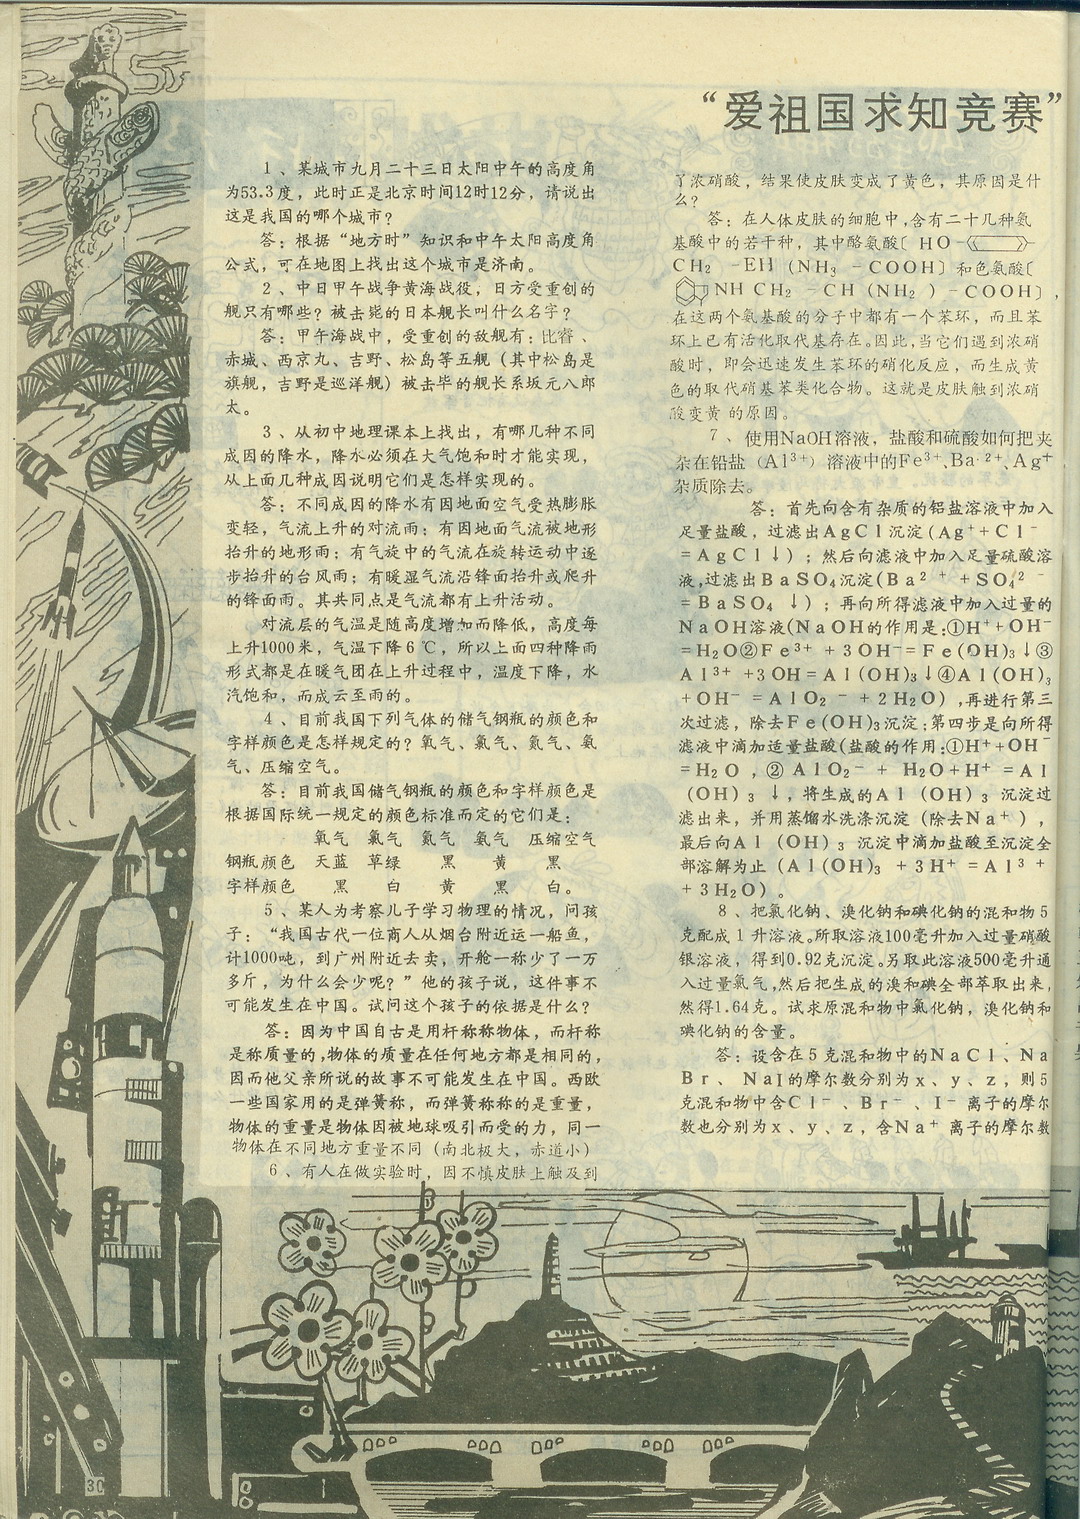 “爱祖国求知竞赛”
1、某城市九月二十三日太阳中午的高度角
为53.3度，此时正是北京时间12时12分，请说出
这是我国的哪个城市？
答：根据“地方时”知识和中午太阳高度角
公式，可在地图上找出这个城市是济南。
2、中日甲午战争黄海战役，日方受重创的
舰只有哪些？被击毙的日本舰长叫什么名字？
答：甲午海战中，受重创的敌舰有：比睿、
赤城、西京丸、吉野、松岛等五舰（其中松岛是
旗舰，吉野是巡洋舰）被击毕的舰长系坂元八郎
太。
3、从初中地理课本上找出，有哪几种不同
成因的降水，降水必须在大气饱和时才能实现，
从上面几种成因说明它们是怎样实现的。
答：不同成因的降水有因地面空气受热膨胀
变轻，气流上升的对流雨；有因地面气流被地形
抬升的地形雨；有气旋中的气流在旋转运动中逐
步抬升的台风雨；有暖湿气流沿锋面抬升或爬升
的锋面雨。其共同点是气流都有上升活动。
对流层的气温是随高度增加而降低，高度每
上升1000米，气温下降6℃，所以上面四种降雨
形式都是在暖气团在上升过程中，温度下降，水
汽饱和，而成云至雨的。
4、目前我国下列气体的储气钢瓶的颜色和
字样颜色是怎样规定的？氧气、氯气、氮气、氨
气、压缩空气。
答：目前我国储气钢瓶的颜色和字样颜色是
根据国际统一规定的颜色标准而定的它们是：
氧气 氯气 氮气 氨气 压缩空气
钢瓶颜色 天蓝 草绿 黑 黄 黑
字样颜色 黑 白 黄 黑 白。
5、某人为考察儿子学习物理的情况，问孩
子：“我国古代一位商人从烟台附近运一船鱼，
计1000吨，到广州附近去卖，开舱一称少了一万
多斤，为什么会少呢？”他的孩子说，这件事不
可能发生在中国。试问这个孩子的依据是什么？
答：因为中国自古是用杆称称物体，而杆称
是称质量的，物体的质量在任何地方都是相同的，
因而他父亲所说的故事不可能发生在中国。西欧
一些国家用的是弹簧称，而弹簧称称的是重量，
物体的重量是物体因被地球吸引而受的力，同一
物体在不同地方重量不同（南北极大，赤道小）
6、有人在做实验时，因不慎皮肤上触及到
了浓硝酸，结果使皮肤变成了黄色，其原因是什
么？
答：在人体皮肤的细胞中，含有二十几种氨
基酸中的若干种，其中酪氨酸〔HO-
CH₂-EH(NH₃-COOH〕和色氨酸〔
NHCH₂-CH(NH₂)-COOH〕，
在这两个氨基酸的分子中都有一个苯环，而且苯
环上已有活化取代基存在。因此，当它们遇到浓硝
酸时，即会迅速发生苯环的硝化反应，而生成黄
色的取代硝基苯类化合物。这就是皮肤触到浓硝
酸变黄的原因。
7、使用NaOH溶液，盐酸和硫酸如何把夹
杂在铅盐（Al³⁺）溶液中的Fe³⁺、Ba²⁺、Ag⁺
杂质除去。
答：首先向含有杂质的铝盐溶液中加入
足量盐酸，过滤出AgCl沉淀(Ag⁺+Cl⁻
=AgCl↓)；然后向滤液中加入足量硫酸溶
液，过滤出BaSO₄沉淀(Ba²⁺+SO₄²⁻
=BaSO₄↓)；再向所得滤液中加入过量的
NaOH溶液(NaOH的作用是：①H⁺+OH⁻
=H₂O②Fe³⁺+3OH⁻=Fe(OH)₃↓③
Al³⁺+3OH=Al(OH)₃↓④Al(OH)₃
+OH⁻=AlO₂⁻+2H₂O)，再进行第三
次过滤，除去Fe(OH)₃沉淀；第四步是向所得
滤液中滴加适量盐酸(盐酸的作用：①H⁺+OH⁻
=H₂O，②AlO₂⁻+H₂O+H⁺=Al
(OH)₃↓，将生成的Al(OH)₃沉淀过
滤出来，并用蒸馏水洗涤沉淀（除去Na⁺），
最后向Al(OH)₃沉淀中滴加盐酸至沉淀全
部溶解为止(Al(OH)₃+3H⁺=Al³⁺
+3H₂O)。
8、把氯化钠、溴化钠和碘化钠的混和物5
克配成1升溶液。所取溶液100毫升加入过量硝酸
银溶液，得到0.92克沉淀。另取此溶液500毫升通
入过量氯气，然后把生成的溴和碘全部萃取出来，
然得1.64克。试求原混和物中氯化钠，溴化钠和
碘化钠的含量。
答：设含在5克混和物中的NaCl、Na
Br、NaI的摩尔数分别为x、y、z，则5
克混和物中含Cl⁻、Br⁻、I⁻离子的摩尔
数也分别为x、y、z，含Na⁺离子的摩尔数
30